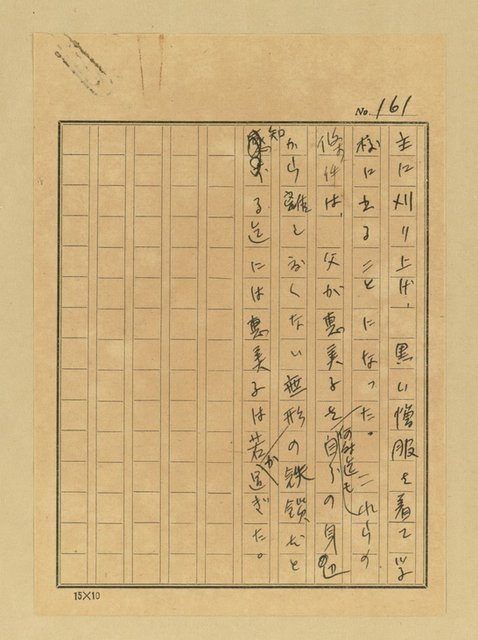 No. 161
主に刈り上げ、黒い僧服を着て学
校に出ることになった。これらの
條件は、父が恵美子を何時迄も自分の身辺
から離したくない無形の鉄鎖だと
知る迄には恵美子は若か過ぎた。
15×10